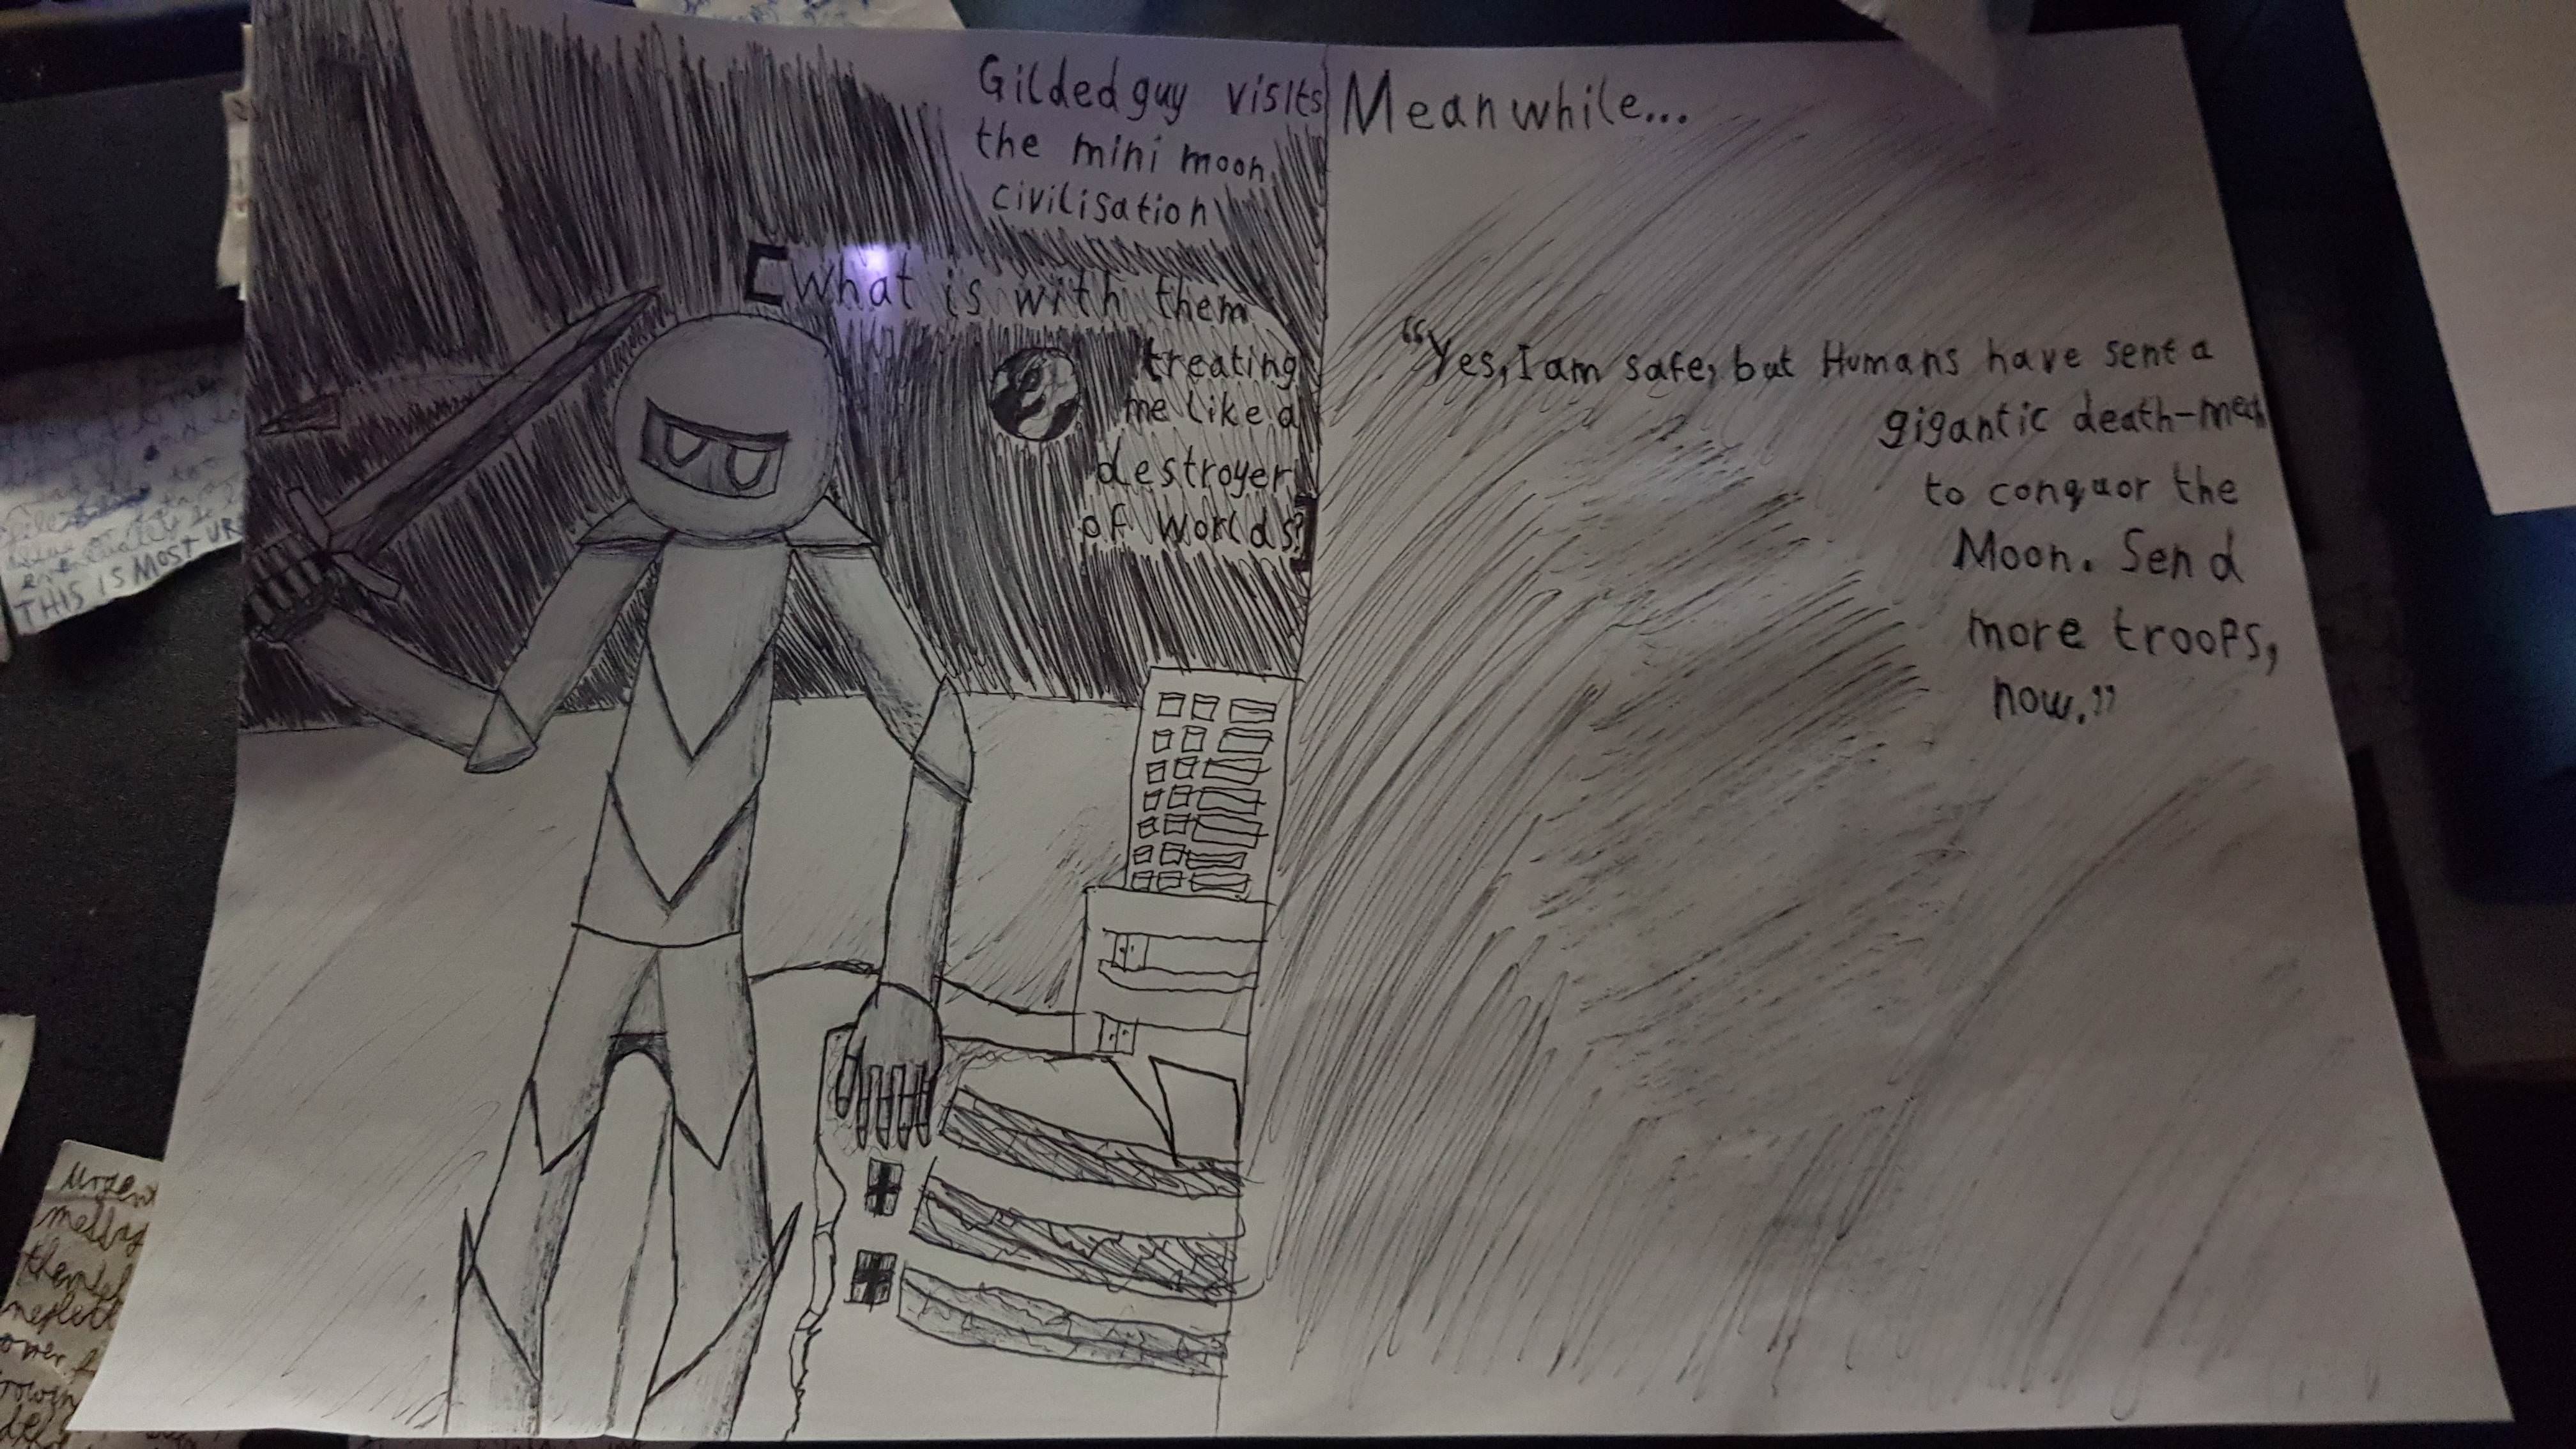 Gildedguy visits
the mini moon
civilisation
[What is with them
treating
me like a
destroyer
of worlds?]
Meanwhile...
“Yes, I am safe, but Humans have sent a
gigantic death-mech
to conquor the
Moon. Send
more troops,
now.”
THIS IS MOST UR
Urgen
messag